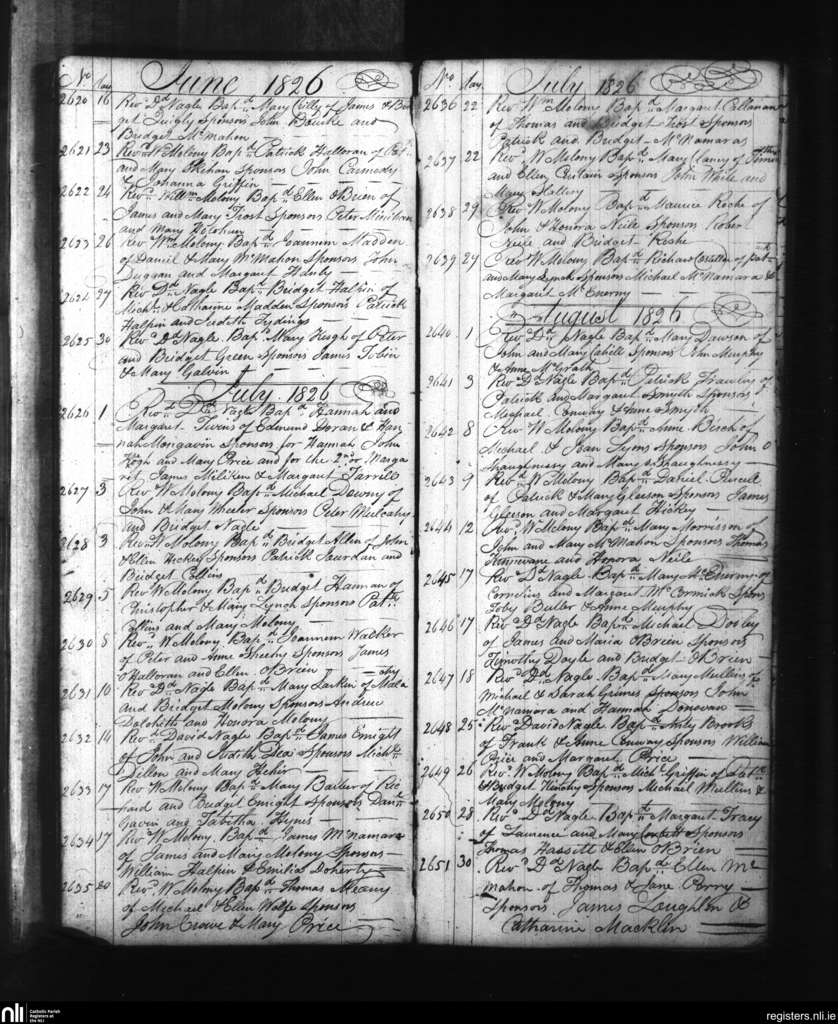 No Day June 1826
2620 16 Revd Dd Nagle Bapd Mary of James & Brid
get Quigly Sponsors John Bourke and
Bridget McMahon
2621 23 Revd W Molony Bapd Patrick Halloran of Patk
and Mary Sponsors John Carmody
& Johanna Griffin
2622 24 Revd Willm Molony Bapd Ellen OBrien of
James and Mary Frost Sponsors Peter
and Mary
2623 26 Revd Wm Molony Bapd Joannem Madden
of Daniel & Mary McMahon Sponsors John
Duggan and Margaret
2624 27 Revd Dd Nagle Bapd Bridget Halpin of
Michl & Catharine Madden Sponsors Patrick
Halpin and Judith
2625 30 Revd Dd Nagle Bapd Mary Hugh of Peter
and Bridget Green Sponsors James Tobin
& Mary Galvin
July 1826
2626 1 Revd Dd Nagle Bapd Hannah and
Margaret Twins of Edmund Doran & Han
nah Mongavin Sponsors for Hannah John
and Mary Price and for the 2nd or Marga
ret James Meliken & Margaret Farrell
2627 3 Revd W Molony Bapd Michael Downy of
John & Mary Wheeler Sponsors Peter Mulcahy
and Bridget Nagle
2628 3 Revd W Molony Bapd Bridget Allen of John
& Ellen Hickey Sponsors Patrick Jourdan and
Bridget Collins
2629 5 Revd W Molony Bapd Bridget Hannan of
Christopher & Mary Lynch Sponsors Patk
Collins and Mary Molony
2630 8 Revd W Molony Bapd Joannem Walker
of Peter and Anne Sheehy Sponsors James
OHalloran and Ellen OBrien
2631 10 Revd Dd Nagle Bapd Mary Larkin of Mala
chy
and Bridget Molony Sponsors Andrew
and Honora Molony
2632 14 Revd David Nagle Bapd James Enright
of John and Judith Dea Sponsors Michl
Dillon and Mary Hehir
2633 17 Revd W Molony Bapd Mary Butler of Ric
hard and Bridget Enright Sponsors Danl
Gavin and Tabitha Hynes
2634 17 Revd W Molony Bapd James McNamara
of James and Mary Molony Sponsors
William Halpin & Emilia Doherty
2635 20 Revd W Molony Bapd Thomas Meany
of Michael & Ellen Wolfe Sponsors
John Crowe & Mary Price
No Day July 1826
2636 22 Revd Wm Molony Bapd Margaret
of Thomas and Bridget Frost Sponsors
Patrick and Bridget McNamaras
2637 22 Revd W Molony Bapd Mary Clancy of
and Ellen Curtain Sponsors John White and
Mary Slattery
2638 29 Revd W Molony Bapd Maurice Roche of
John & Honora Neile Sponsors Robert
Neile and Bridget Roche
2639 29 Revd W Molony Bapd Richard Costello of Patk
and Mary Lynch Sponsors Michael McNamara &
Margaret McEnerny
August 1826
2640 1 Revd Dd Nagle Bapd Mary Dawson of
John and Mary Cahill Sponsors John Murphy
& Anne McGrath
2641 3 Revd Dd Nagle Bapd Patrick Frawley of
Patrick and Margaret Smyth Sponsors
Michael Conway & Anne Smyth
2642 8 Revd W Molony Bapd Anne Birch of
Michael & Joan Lyons Sponsors John O
Shaughnessy and Mary OShaughnessy
2643 9 Revd W Molony Bapd Daniel Purcell
of Patrick & Mary Gleeson Sponsors James
Gleeson and Margaret Hickey
2644 12 Revd W Molony Bapd Mary Morrisson of
John and Mary McMahon Sponsors Thomas
and Honora Neile
2645 17 Revd Dd Nagle Bapd Mary McEnerny of
Cornelius and Margaret McCormick Spons
Toby Butler & Anne Murphy
2646 17 Revd Dd Nagle Bapd Michael Dooly
of James and Maria OBrien Sponsors
Timothy Doyle and Bridget OBrien
2647 18 Revd Dd Nagle Bapd Mary Mullins of
Michael & Sarah Grimes Sponsors John
McNamara and Hannah Donovan
2648 25 Revd David Nagle Bapd Anty Brooks
of Frank & Anne Conway Sponsors William
Price and Margaret Price
2649 26 Revd W Molony Bapd Michl Griffin of Patk
& Bridget Sponsors Michael Mullins &
Mary Molony
2650 28 Revd Dd Nagle Bapd Margaret Tracy
of Laurence and Mary Corbett Sponsors
Thomas Hassett & Ellen OBrien
2651 30 Revd Dd Nagle Bapd Ellen Mc
mahon of Thomas & Jane Perry
Sponsors James Loughlin &
Catharine Macklin
nli Catholic Parish
Registers at
the NLI
registers.nli.ie